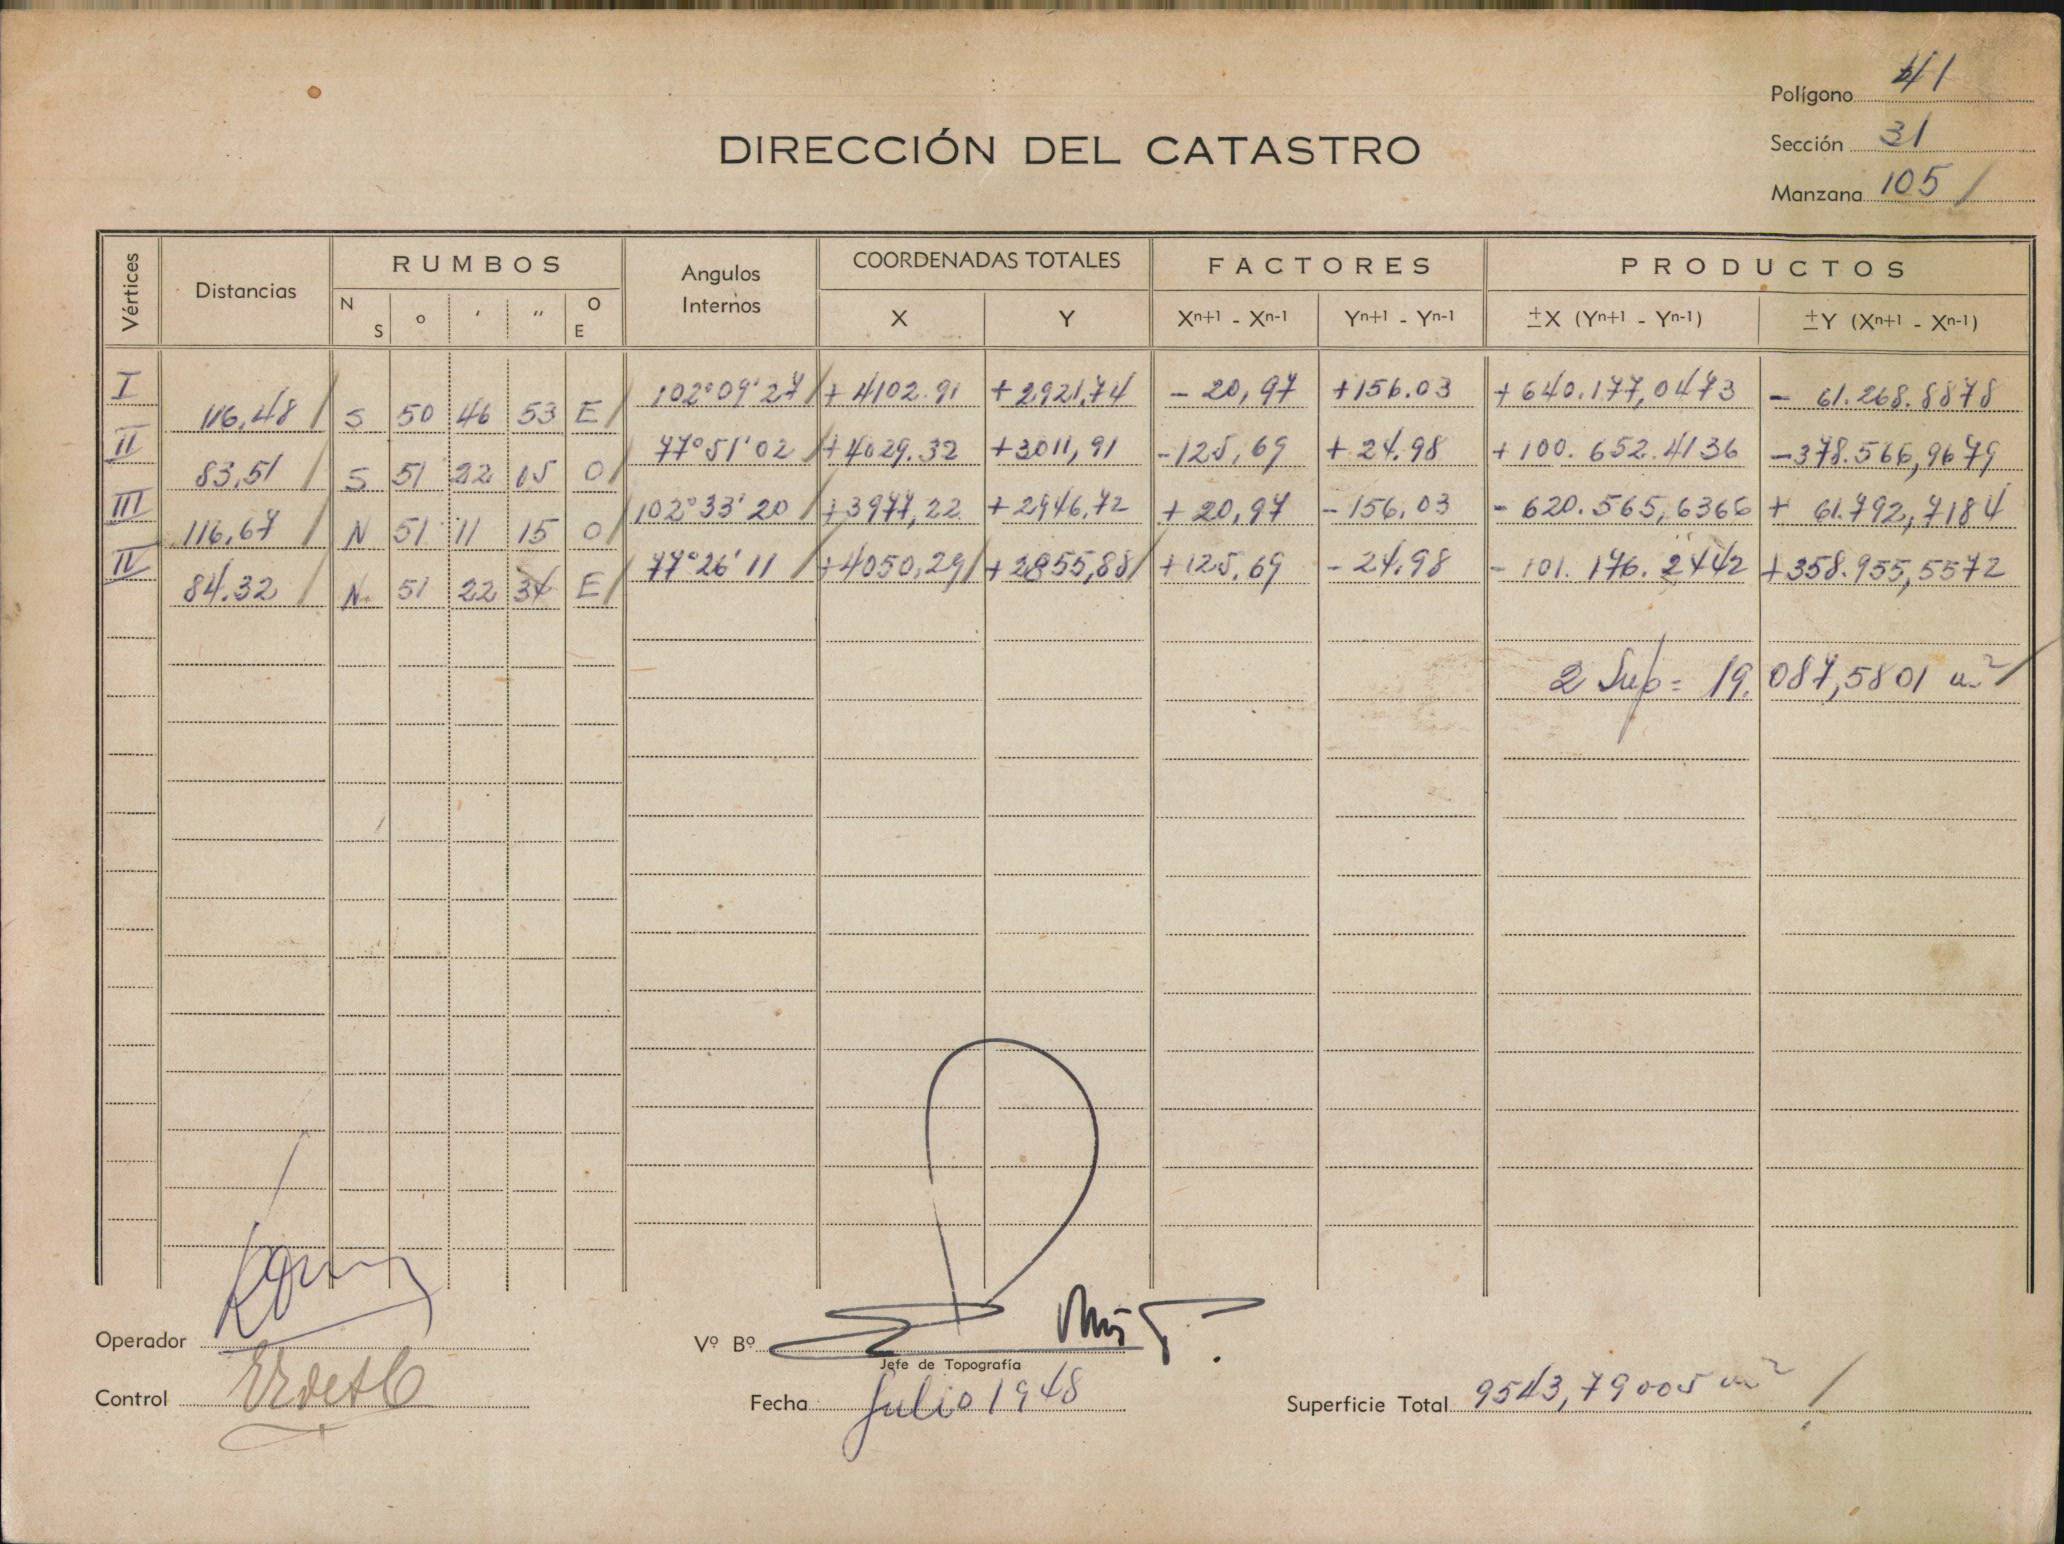 Polígono 41
DIRECCIÓN DEL CATASTRO
Sección 31
Manzana 105 /
Vértices Distancias RUMBOS Angulos Internos COORDENADAS TOTALES FACTORES PRODUCTOS
N S o ′ ″ O E X Y Xn+1 - Xn-1 Yn+1 - Yn-1 ±X (Yn+1 - Yn-1) ±Y (Xn+1 - Xn-1)
I 102°09'27 / + 4102.91 + 2921,74 - 20,97 +156.03 + 640.177,0473 - 61.268.8878
116,48 / S 50 46 53 E /
II 77°51'02 / +4029.32 +3011,91 -125,69 + 24.98 + 100.652.4136 -378.566,9679
83,51 / S 51 22 05 O /
III 102°33'20 / +3977,22 + 2946,72 + 20,97 - 156,03 - 620.565,6366 + 61.792,7184
116,67 / N 51 11 15 O /
IV 77°26'11 / +4050,29 / + 2855,88 / +125,69 - 24,98 - 101.176.2442 +358.955,5572
84.32 / N 51 22 34 E /
2 Sup = 19.087,5801 m² /
Operador
Vº Bº
Jefe de Topografía
Control
Fecha Julio 1948
Superficie Total 9543,79005 m² /